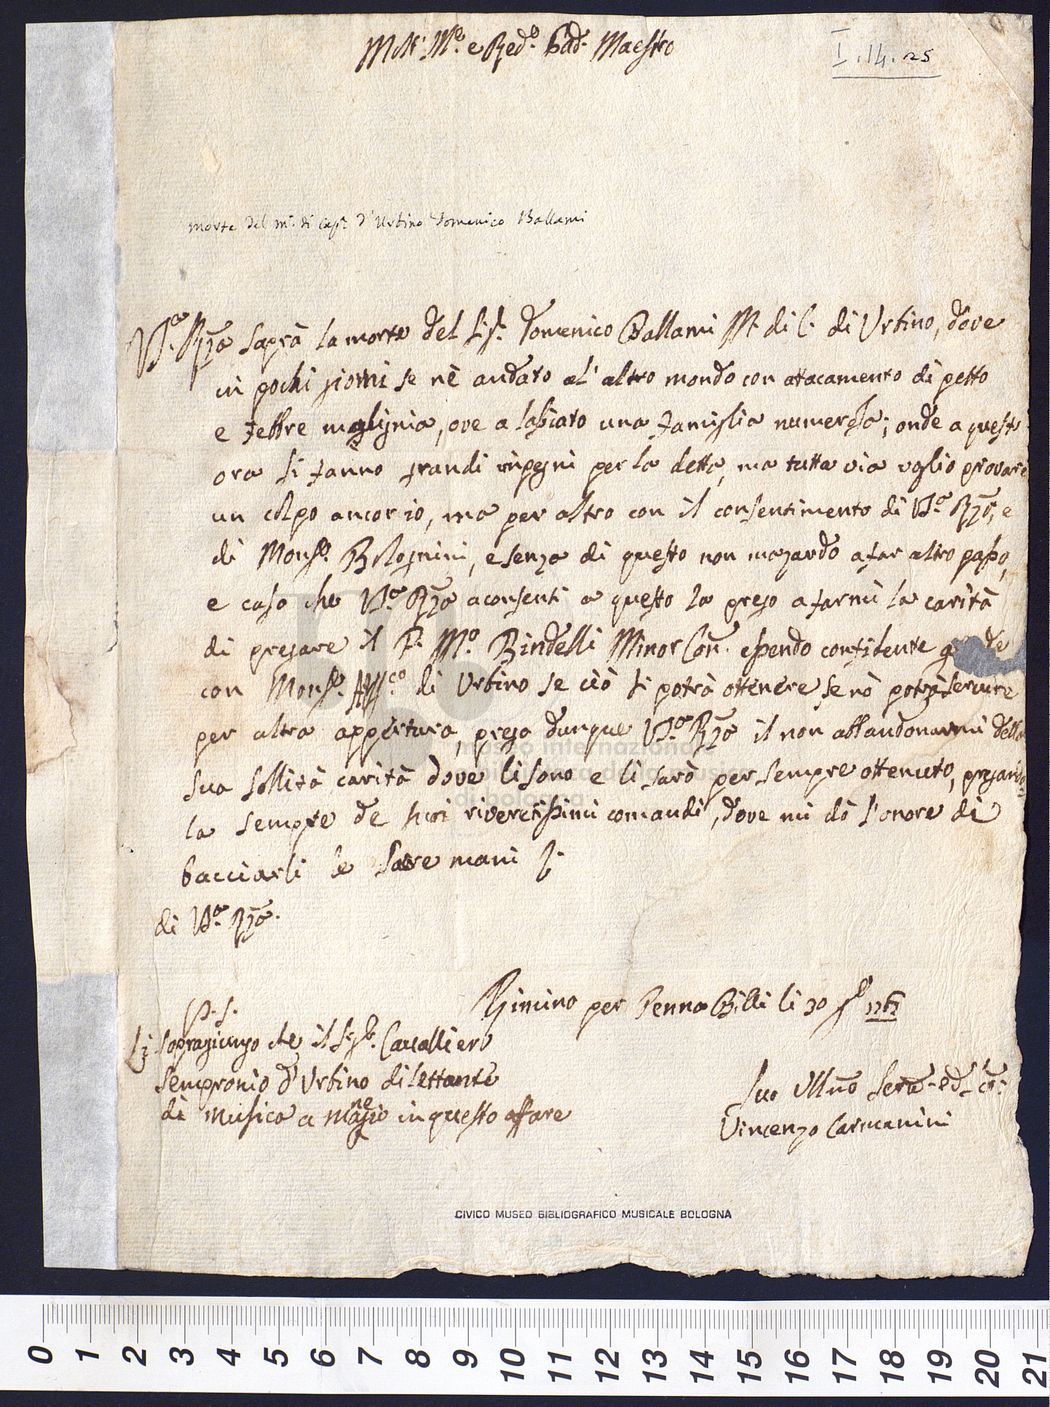 Molt' Mo. e Redo. Pad. Maestro
I. 14. 25
morte del mo. di capa. d'Urbino Domenico Ballami
Va. Rza saprà la morte del Sigr. Domenico Ballami Mo. di C. di Urbino, dove
in pochi giorni se nè andato al' altro mondo con attacamento di petto
e febre maglignia, ove a lasciato una famiglia numerosa; onde a quest'
ora si fanno grandi inpegni per la detta, ma tutta via voglio provare
un colpo ancor io, ma per altro con il consentimento di Va. Rza, e
di Monsr. Bolognini, e senza di questo non mazardo a far altro passo,
e caso che Va. Rza aconsenti a questo la prego a farmi la carità
di pregare il P. Mo. Bindelli Minor Con. essendo confidente
con Monsr. di Urbino se ciò si potrà ottenere se nò potrà servire
per altra appertura prego dunque Va. Rza il non abbandonarmi della
sua sollita carità dove li sono e li sarò per sempre ottenuto, pregando
la sempre de suoi riveritissimi comandi, dove mi dò l'onore di
bacciarli le Sacre mani
di Va. Rza.
Rimino per Penna Billi li 30
P. S.
Li sopragiungo che il Sigr. Cavalliero
Sempronio d'Urbino dilettante
di musica a mane in questo affare
Suo Umo Servo
Vincenzo Carmanini
CIVICO MUSEO BIBLIOGRAFICO MUSICALE BOLOGNA
museo internazionale
e biblioteca della musica
di bologna
0 1 2 3 4 5 6 7 8 9 10 11 12 13 14 15 16 17 18 19 20 21